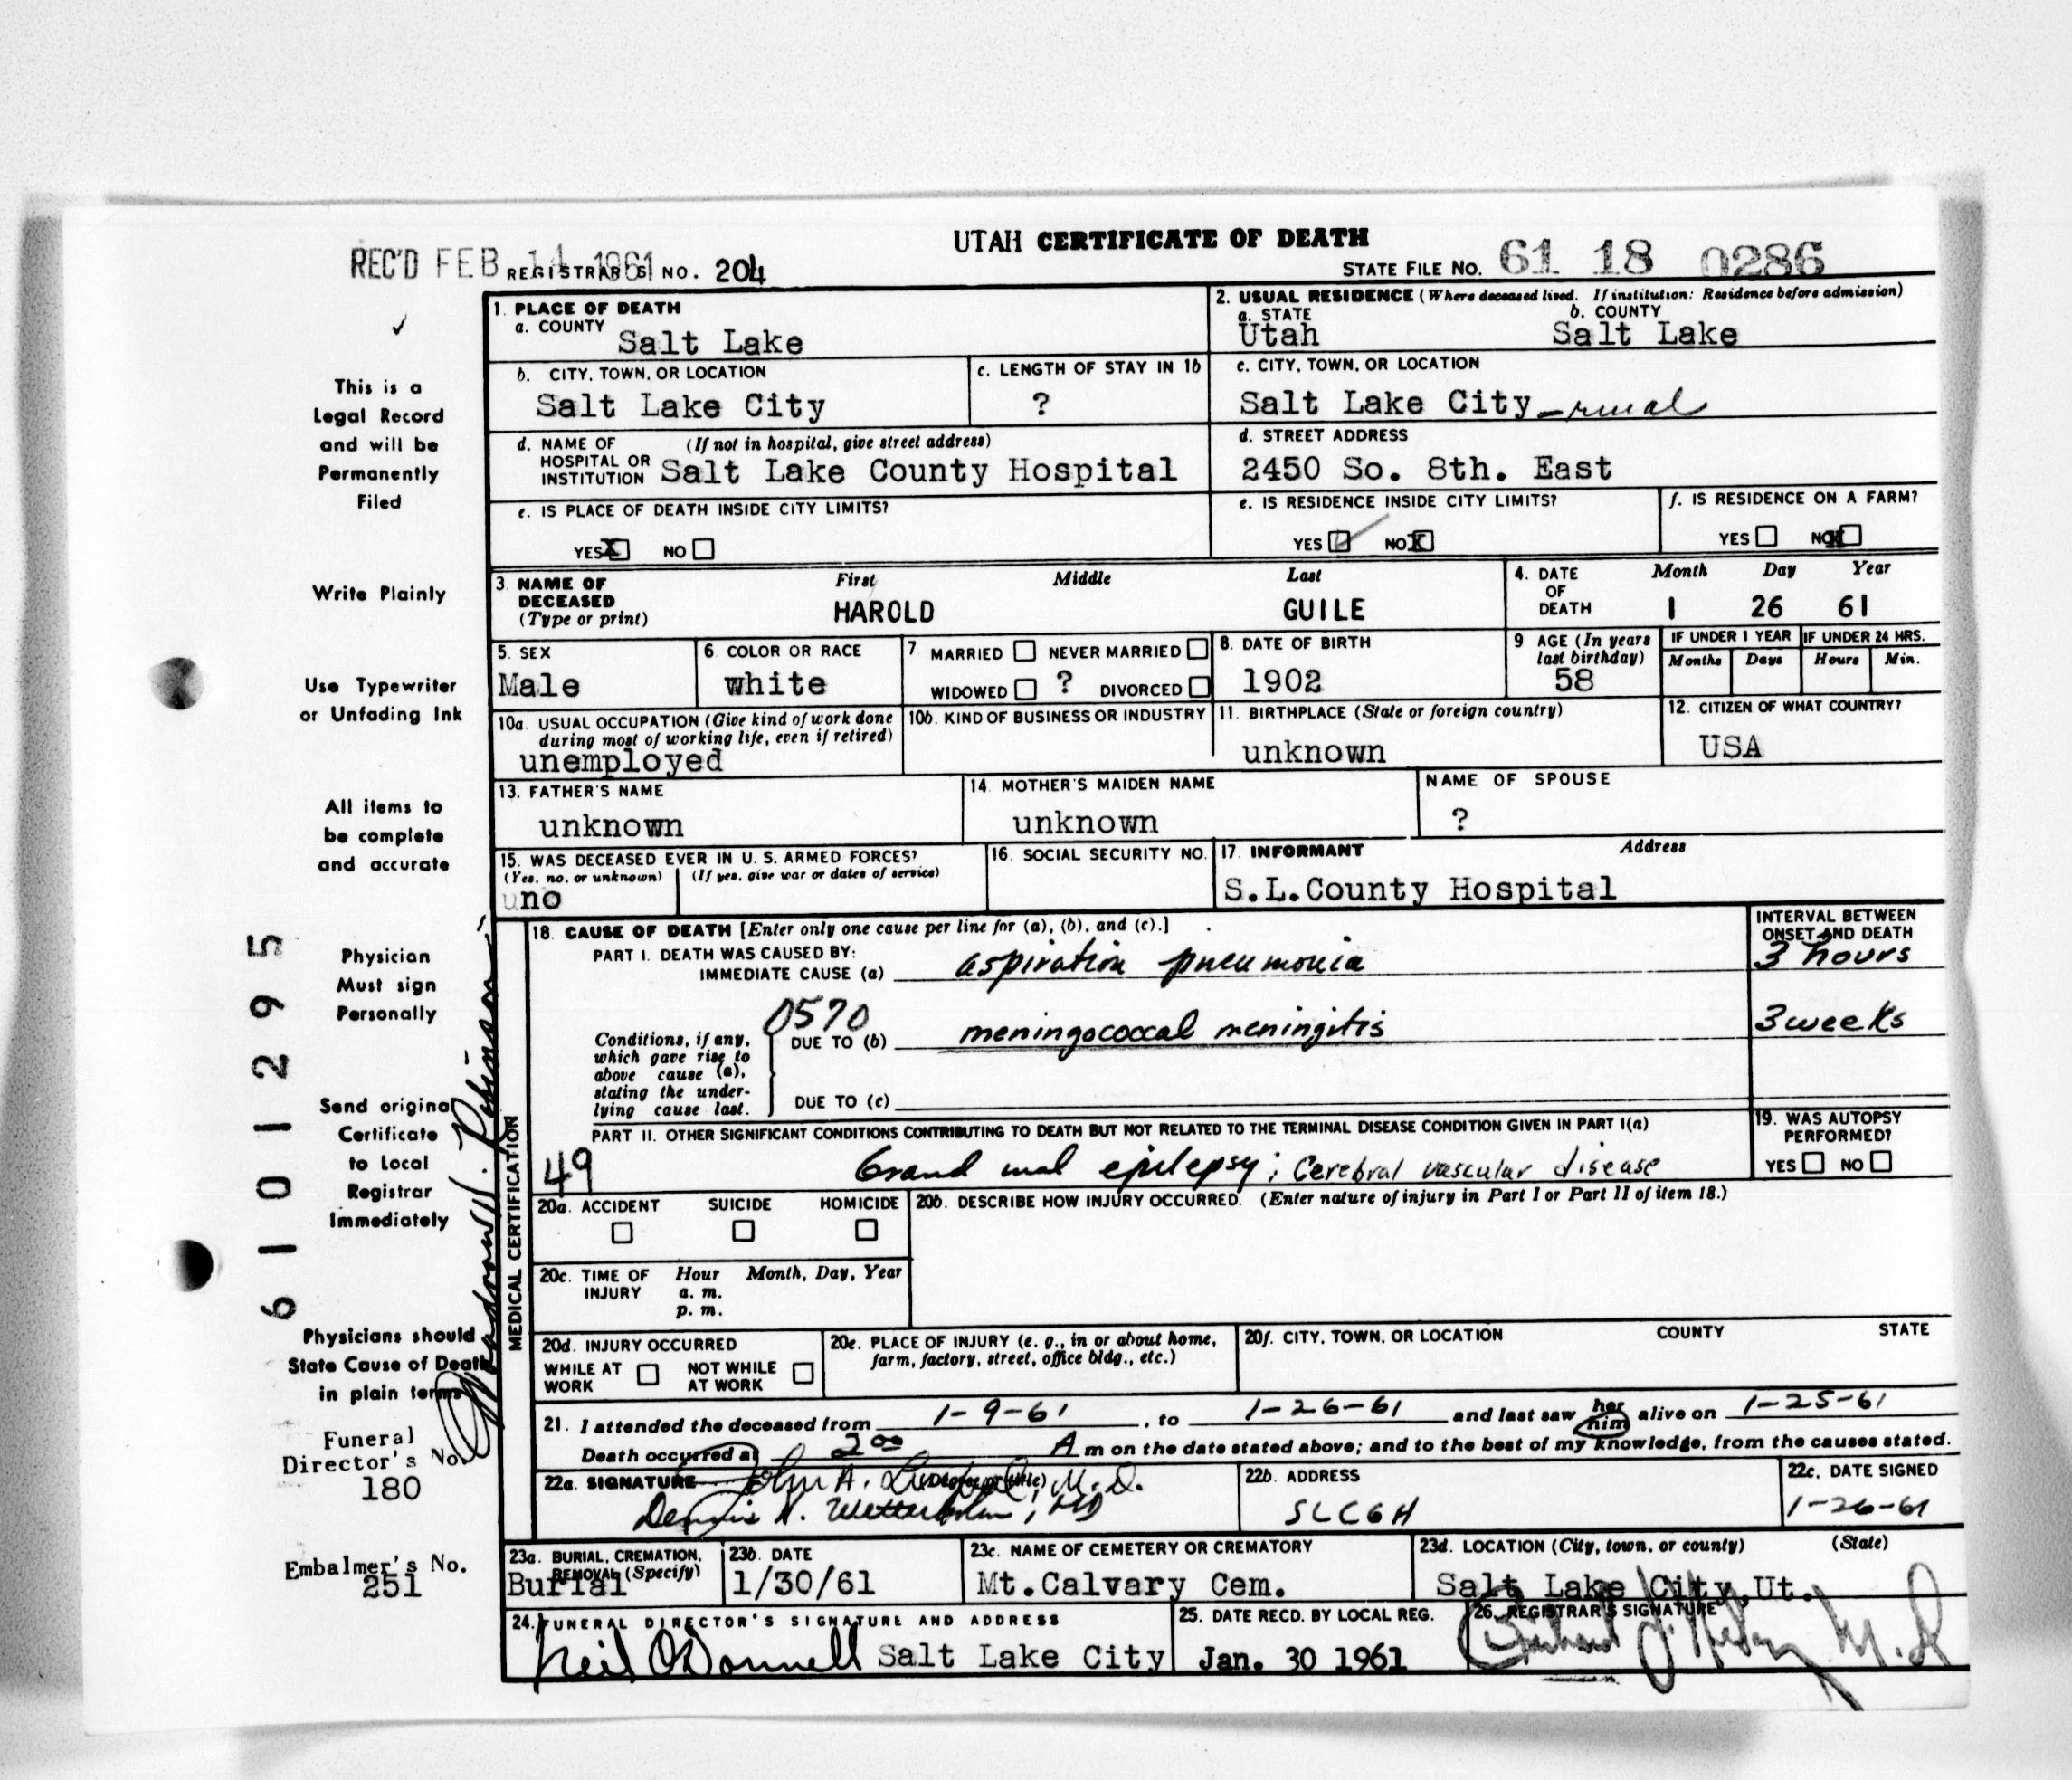 UTAH CERTIFICATE OF DEATH
REC'D FEB 14 1961 REGISTRAR'S NO. 204
STATE FILE NO. 61 18 0286
1. PLACE OF DEATH
a. COUNTY Salt Lake
2. USUAL RESIDENCE (Where deceased lived. If institution: Residence before admission)
a. STATE Utah b. COUNTY Salt Lake
b. CITY, TOWN, OR LOCATION Salt Lake City
c. LENGTH OF STAY IN 1b ?
c. CITY, TOWN, OR LOCATION Salt Lake City - rural
d. NAME OF HOSPITAL OR INSTITUTION (If not in hospital, give street address) Salt Lake County Hospital
d. STREET ADDRESS 2450 So. 8th. East
e. IS PLACE OF DEATH INSIDE CITY LIMITS?
YES X NO
e. IS RESIDENCE INSIDE CITY LIMITS?
YES NO X
f. IS RESIDENCE ON A FARM?
YES NO X
3. NAME OF DECEASED (Type or print)
First Middle Last
HAROLD GUILE
4. DATE OF DEATH Month Day Year
1 26 61
5. SEX Male
6. COLOR OR RACE white
7 MARRIED NEVER MARRIED
WIDOWED ? DIVORCED
8. DATE OF BIRTH 1902
9 AGE (In years last birthday) 58
IF UNDER 1 YEAR Months Days
IF UNDER 24 HRS. Hours Min.
10a. USUAL OCCUPATION (Give kind of work done during most of working life, even if retired)
unemployed
10b. KIND OF BUSINESS OR INDUSTRY
11. BIRTHPLACE (State or foreign country) unknown
12. CITIZEN OF WHAT COUNTRY? USA
13. FATHER'S NAME unknown
14. MOTHER'S MAIDEN NAME unknown
NAME OF SPOUSE ?
15. WAS DECEASED EVER IN U. S. ARMED FORCES?
(Yes, no, or unknown) (If yes, give war or dates of service)
uno
16. SOCIAL SECURITY NO.
17. INFORMANT Address
S.L.County Hospital
MEDICAL CERTIFICATION
18. CAUSE OF DEATH [Enter only one cause per line for (a), (b), and (c).]
INTERVAL BETWEEN ONSET AND DEATH
PART I. DEATH WAS CAUSED BY:
IMMEDIATE CAUSE (a) aspiration pneumonia 3 hours
0570
Conditions, if any, which gave rise to above cause (a), stating the underlying cause last.
DUE TO (b) meningococcal meningitis 3 weeks
DUE TO (c)
PART II. OTHER SIGNIFICANT CONDITIONS CONTRIBUTING TO DEATH BUT NOT RELATED TO THE TERMINAL DISEASE CONDITION GIVEN IN PART I(a)
49 Grand mal epilepsy; Cerebral vascular disease
19. WAS AUTOPSY PERFORMED?
YES NO
20a. ACCIDENT SUICIDE HOMICIDE
20b. DESCRIBE HOW INJURY OCCURRED. (Enter nature of injury in Part I or Part II of item 18.)
20c. TIME OF INJURY Hour Month, Day, Year
a. m.
p. m.
20d. INJURY OCCURRED
WHILE AT WORK NOT WHILE AT WORK
20e. PLACE OF INJURY (e. g., in or about home, farm, factory, street, office bldg., etc.)
20f. CITY, TOWN, OR LOCATION COUNTY STATE
21. I attended the deceased from 1-9-61, to 1-26-61 and last saw her him alive on 1-25-61
Death occurred at 2 00 A m on the date stated above; and to the best of my knowledge, from the causes stated.
22a. SIGNATURE (Degree or title) John A. M.D.
Dennis MD
22b. ADDRESS SLCGH
22c. DATE SIGNED 1-26-61
23a. BURIAL, CREMATION, REMOVAL (Specify) Burial
23b. DATE 1/30/61
23c. NAME OF CEMETERY OR CREMATORY Mt.Calvary Cem.
23d. LOCATION (City, town, or county) (State)
Salt Lake City,Ut.
24. FUNERAL DIRECTOR'S SIGNATURE AND ADDRESS
Neil O'Donnell Salt Lake City
25. DATE RECD. BY LOCAL REG. Jan. 30 1961
26. REGISTRAR'S SIGNATURE
M.D
This is a
Legal Record
and will be
Permanently
Filed
Write Plainly
Use Typewriter
or Unfading Ink
All items to
be complete
and accurate
Physician
Must sign
Personally
Send original
Certificate
to Local
Registrar
Immediately
Physicians should
State Cause of Death
in plain terms
Funeral
Director's No.
180
Embalmer's No.
251
6101295
Robinson